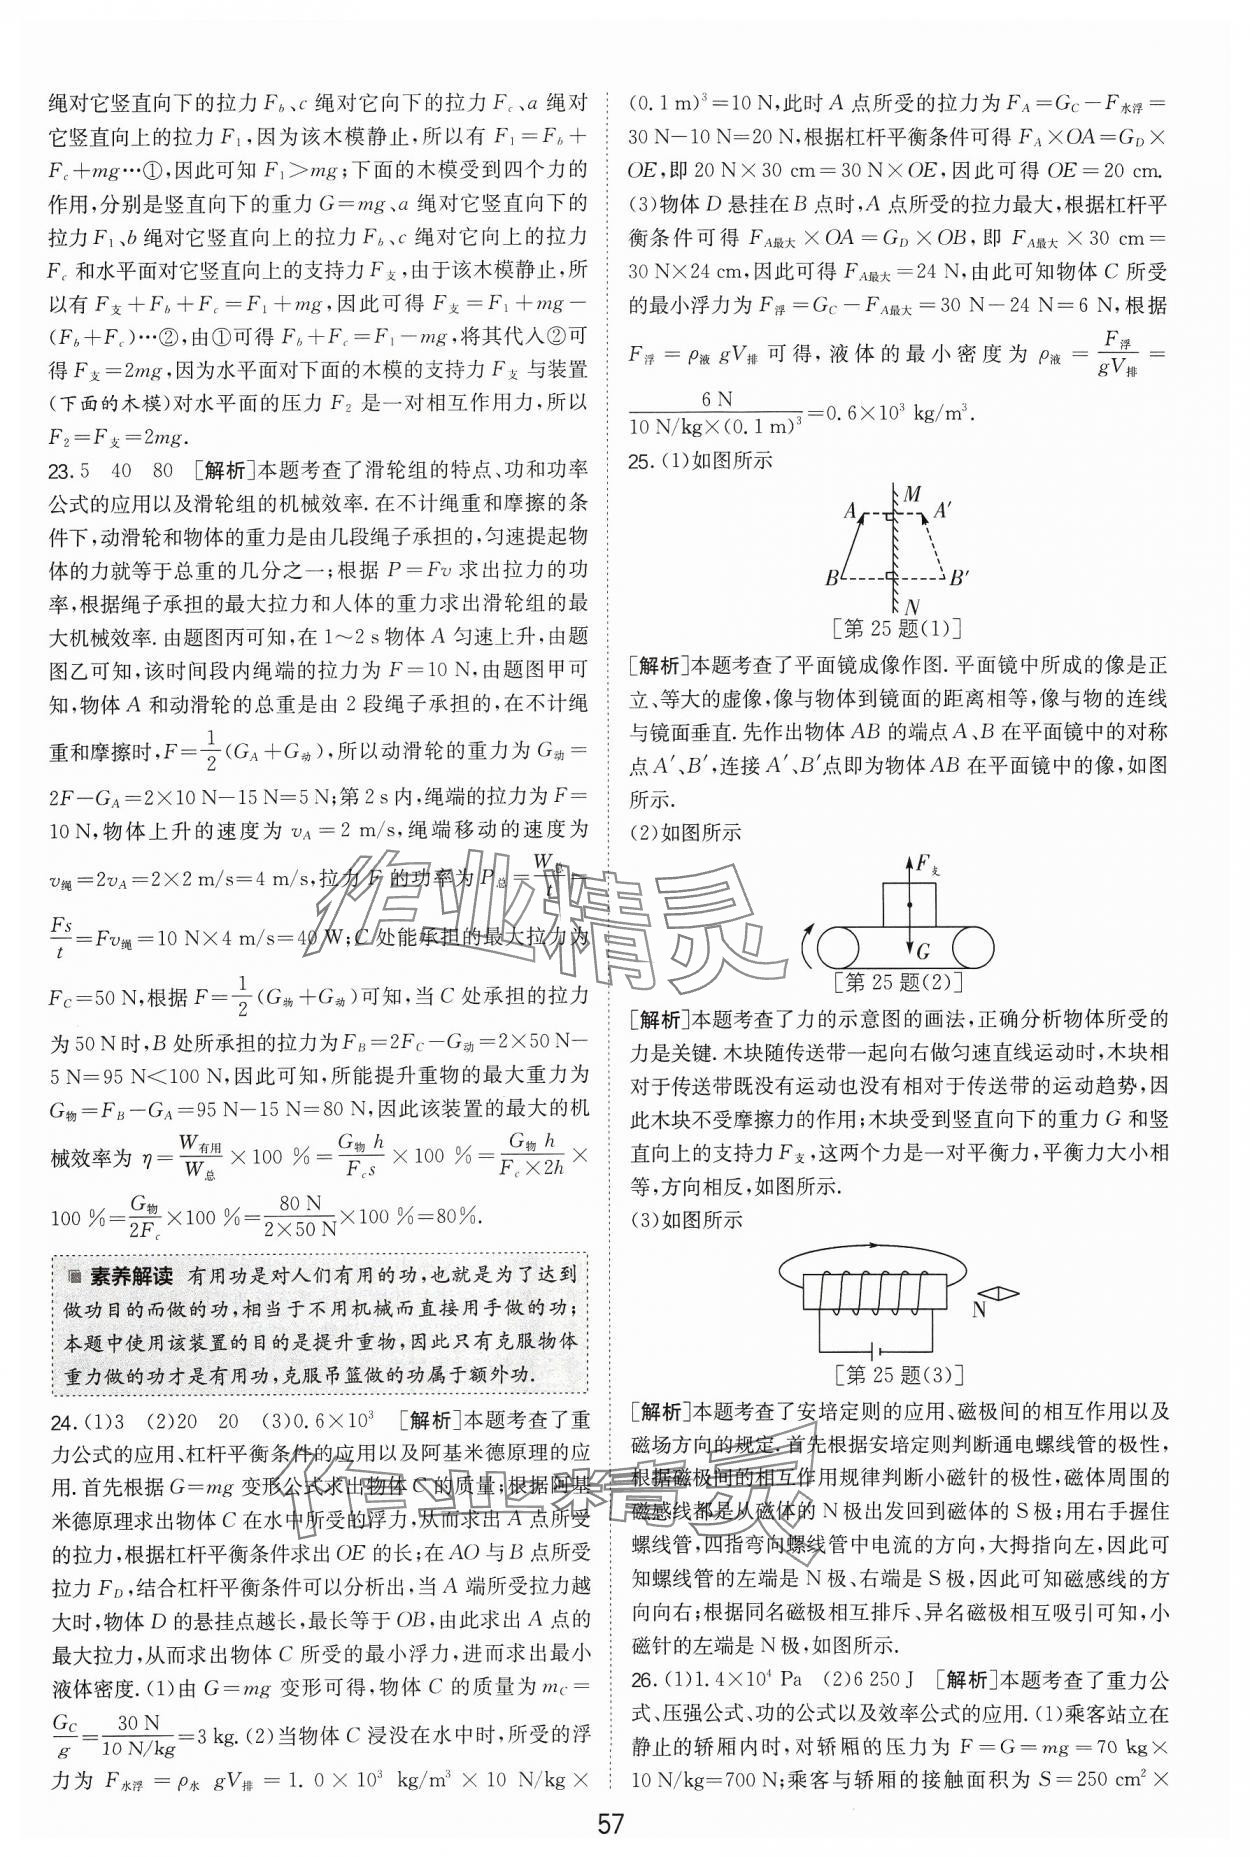 绳对它竖直向下的拉力 F_b、c 绳对它向下的拉力 F_c、a 绳对
它竖直向上的拉力 F₁,因为该木模静止,所以有 F₁=F_b+
F_c+mg…①,因此可知 F₁>mg;下面的木模受到四个力的
作用,分别是竖直向下的重力 G=mg、a 绳对它竖直向下的
拉力 F₁、b 绳对它竖直向上的拉力 F_b、c 绳对它向上的拉力
F_c 和水平面对它竖直向上的支持力 F支,由于该木模静止,所
以有 F支+F_b+F_c=F₁+mg,因此可得 F支=F₁+mg-
(F_b+F_c)…②,由①可得 F_b+F_c=F₁-mg,将其代入②可
得 F支=2mg,因为水平面对下面的木模的支持力 F支 与装置
(下面的木模)对水平面的压力 F₂ 是一对相互作用力,所以
F₂=F支=2mg.
23.5 40 80 [解析]本题考查了滑轮组的特点、功和功率
公式的应用以及滑轮组的机械效率. 在不计绳重和摩擦的条
件下,动滑轮和物体的重力是由几段绳子承担的,匀速提起物
体的力就等于总重的几分之一;根据 P=Fv 求出拉力的功
率,根据绳子承担的最大拉力和人体的重力求出滑轮组的最
大机械效率. 由题图丙可知,在 1~2 s 物体 A 匀速上升,由题
图乙可知,该时间段内绳端的拉力为 F=10 N,由题图甲可
知,物体 A 和动滑轮的总重是由 2 段绳子承担的,在不计绳
重和摩擦时,F=1/2(G_A+G动),所以动滑轮的重力为 G动=
2F-G_A=2×10 N-15 N=5 N;第 2 s 内,绳端的拉力为 F=
10 N,物体上升的速度为 v_A=2 m/s,绳端移动的速度为
v绳=2v_A=2×2 m/s=4 m/s,拉力 F 的功率为 P总=W总/t=
Fs/t=Fv绳=10 N×4 m/s=40 W;C 处能承担的最大拉力为
F_C=50 N,根据 F=1/2(G物+G动)可知,当 C 处承担的拉力
为 50 N 时,B 处所承担的拉力为 F_B=2F_C-G动=2×50 N-
5 N=95 N<100 N,因此可知,所能提升重物的最大重力为
G物=F_B-G_A=95 N-15 N=80 N,因此该装置的最大的机
械效率为 η=W有用/W总×100 %=G物 h/F_c s×100 %=G物 h/F_c×2h×
100 %=G物/2F_c×100 %=80 N/2×50 N×100 %=80%.
素养解读 有用功是对人们有用的功,也就是为了达到
做功目的而做的功,相当于不用机械而直接用手做的功;
本题中使用该装置的目的是提升重物,因此只有克服物体
重力做的功才是有用功,克服吊篮做的功属于额外功.
24.(1)3 (2)20 20 (3)0.6×10³ [解析]本题考查了重
力公式的应用、杠杆平衡条件的应用以及阿基米德原理的应
用. 首先根据 G=mg 变形公式求出物体 C 的质量;根据阿基
米德原理求出物体 C 在水中所受的浮力,从而求出 A 点所受
的拉力,根据杠杆平衡条件求出 OE 的长;在 AO 与 B 点所受
拉力 F_D,结合杠杆平衡条件可以分析出,当 A 端所受拉力越
大时,物体 D 的悬挂点越长,最长等于 OB,由此求出 A 点的
最大拉力,从而求出物体 C 所受的最小浮力,进而求出最小
液体密度.(1)由 G=mg 变形可得,物体 C 的质量为 m_C=
G_C/g=30 N/10 N/kg=3 kg.(2)当物体 C 浸没在水中时,所受的浮
力为 F水浮=ρ水 gV排=1.0×10³ kg/m³×10 N/kg×
(0.1 m)³=10 N,此时 A 点所受的拉力为 F_A=G_C-F水浮=
30 N-10 N=20 N,根据杠杆平衡条件可得 F_A×OA=G_D×
OE,即 20 N×30 cm=30 N×OE,因此可得 OE=20 cm.
(3)物体 D 悬挂在 B 点时,A 点所受的拉力最大,根据杠杆平
衡条件可得 F_A最大×OA=G_D×OB,即 F_A最大×30 cm=
30 N×24 cm,因此可得 F_A最大=24 N,由此可知物体 C 所受
的最小浮力为 F浮=G_C-F_A最大=30 N-24 N=6 N,根据
F浮=ρ液 gV排 可得,液体的最小密度为 ρ液=F浮/gV排=
6 N/10 N/kg×(0.1 m)³=0.6×10³ kg/m³.
25.(1)如图所示
M
A A′
B B′
N
[第 25 题(1)]
[解析]本题考查了平面镜成像作图. 平面镜中所成的像是正
立、等大的虚像,像与物体到镜面的距离相等,像与物的连线
与镜面垂直. 先作出物体 AB 的端点 A、B 在平面镜中的对称
点 A′、B′,连接 A′、B′点即为物体 AB 在平面镜中的像,如图
所示.
(2)如图所示
F支
G
[第 25 题(2)]
[解析]本题考查了力的示意图的画法,正确分析物体所受的
力是关键. 木块随传送带一起向右做匀速直线运动时,木块相
对于传送带既没有运动也没有相对于传送带的运动趋势,因
此木块不受摩擦力的作用;木块受到竖直向下的重力 G 和竖
直向上的支持力 F支,这两个力是一对平衡力,平衡力大小相
等,方向相反,如图所示.
(3)如图所示
N
[第 25 题(3)]
[解析]本题考查了安培定则的应用、磁极间的相互作用以及
磁场方向的规定. 首先根据安培定则判断通电螺线管的极性,
根据磁极间的相互作用规律判断小磁针的极性,磁体周围的
磁感线都是从磁体的 N 极出发回到磁体的 S 极;用右手握住
螺线管,四指弯向螺线管中电流的方向,大拇指向左,因此可
知螺线管的左端是 N 极、右端是 S 极,因此可知磁感线的方
向向右;根据同名磁极相互排斥、异名磁极相互吸引可知,小
磁针的左端是 N 极,如图所示.
26.(1)1.4×10⁴ Pa (2)6 250 J [解析]本题考查了重力公
式、压强公式、功的公式以及效率公式的应用.(1)乘客站立在
静止的轿厢内时,对轿厢的压力为 F=G=mg=70 kg×
10 N/kg=700 N;乘客与轿厢的接触面积为 S=250 cm²×
57
作业精灵
作业精灵